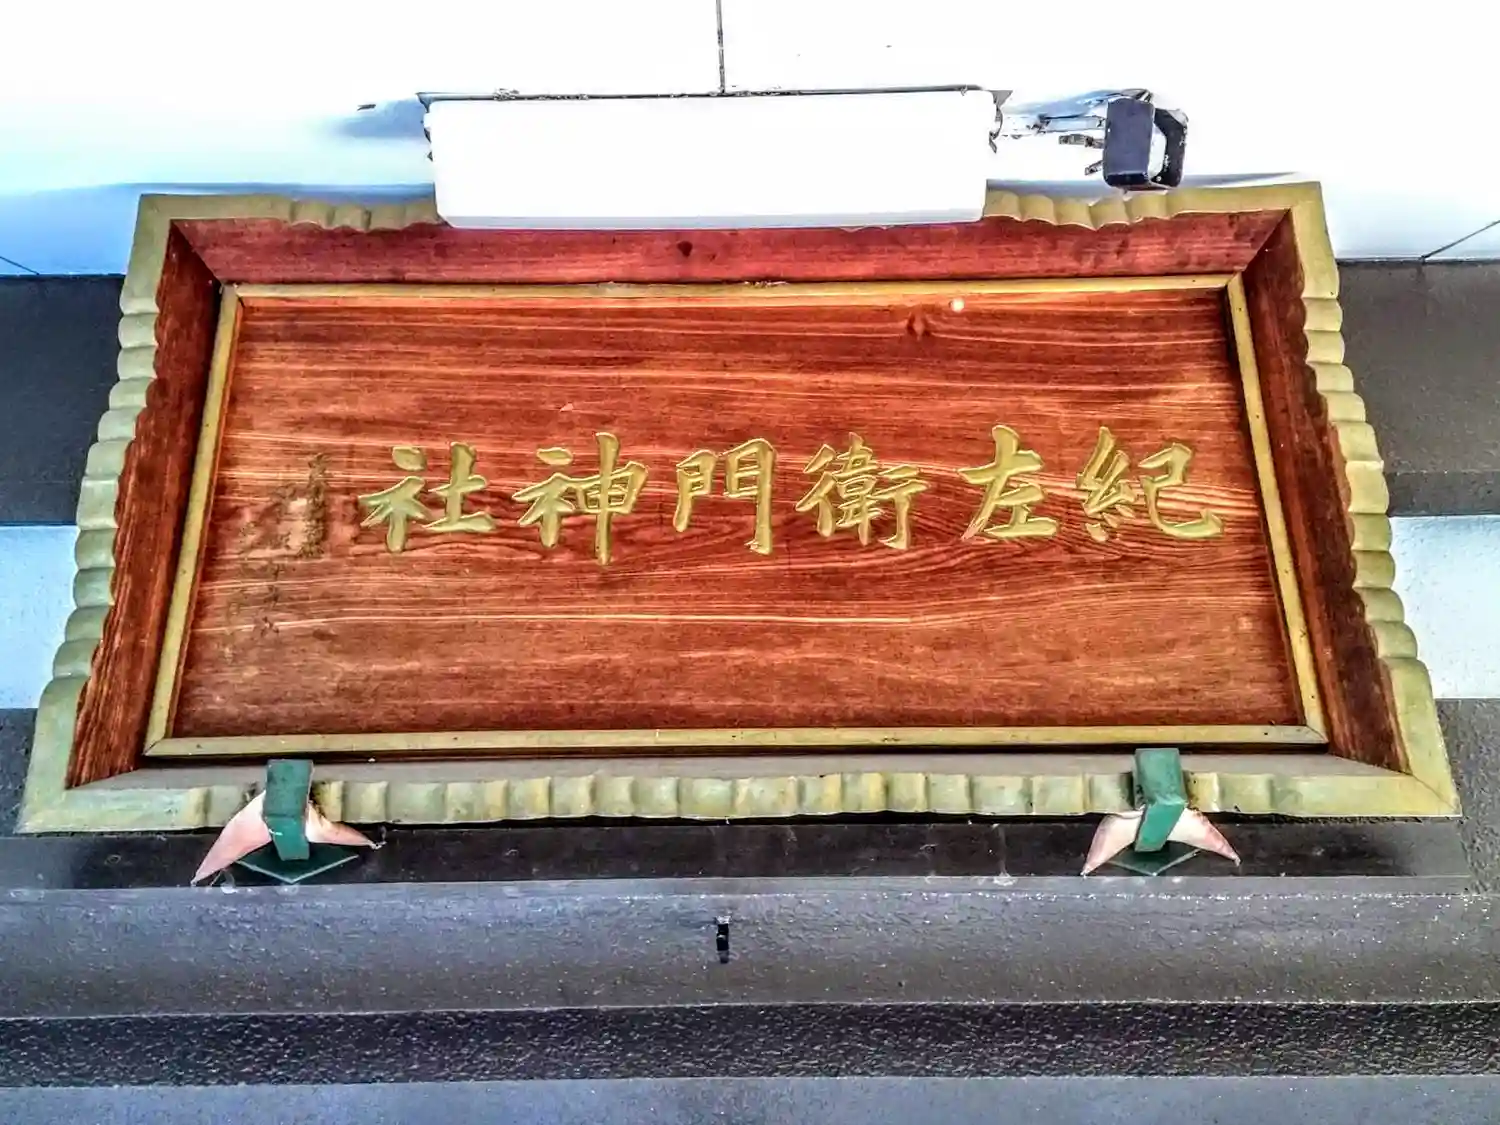 紀左衛門神社